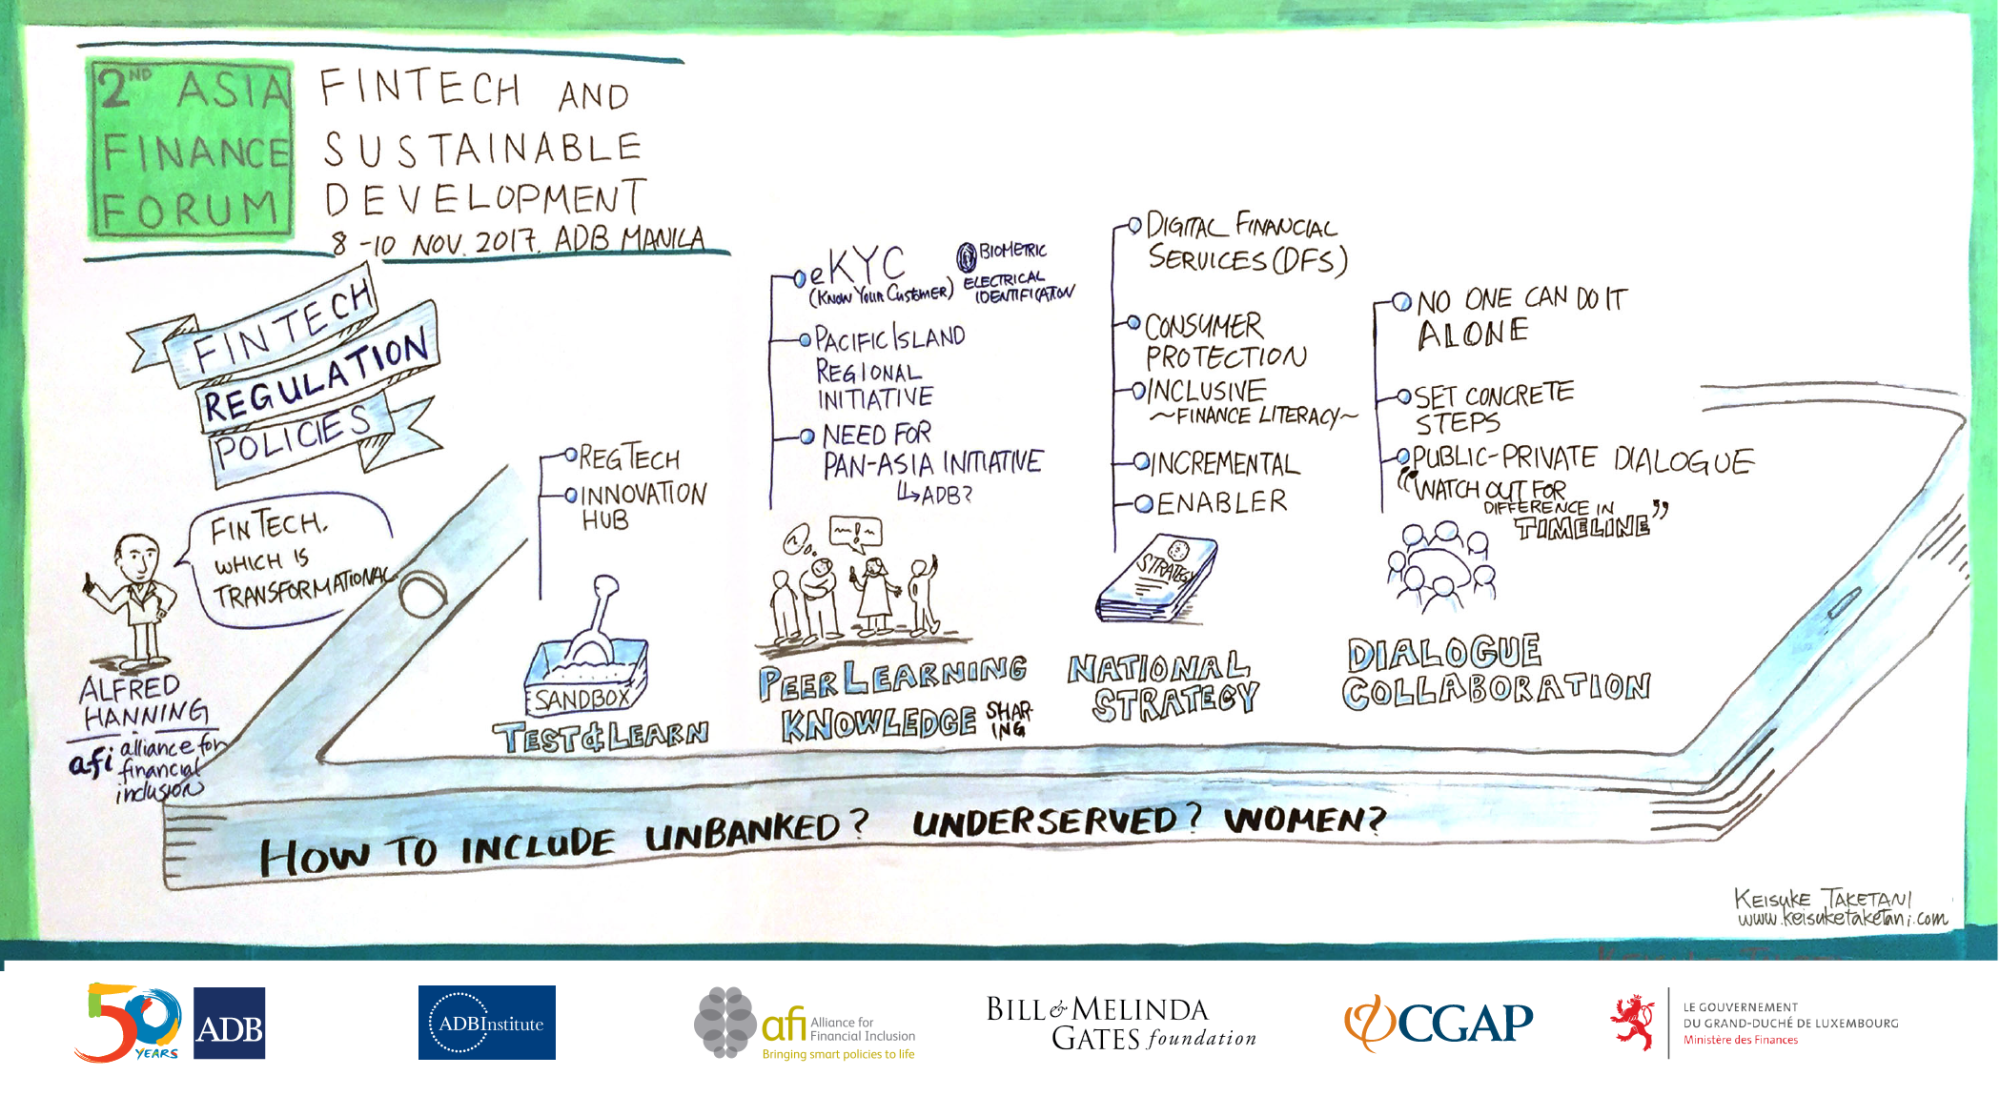 2ND ASIA
FINANCE
FORUM
FINTECH AND
SUSTAINABLE
DEVELOPMENT
8-10 NOV. 2017. ADB MANILA
FINTECH
REGULATION
POLICIES
FINTECH.
WHICH IS
TRANSFORMATIONAL
ALFRED
HANNING
afi alliance for
financial
inclusion
REGTECH
INNOVATION
HUB
SANDBOX
TEST & LEARN
eKYC
(KNOW YOUR CUSTOMER)
BIOMETRIC
ELECTRICAL
IDENTIFICATION
PACIFIC ISLAND
REGIONAL
INITIATIVE
NEED FOR
PAN-ASIA INITIATIVE
ADB?
PEER LEARNING
KNOWLEDGE SHAR-
ING
DIGITAL FINANCIAL
SERVICES (DFS)
CONSUMER
PROTECTION
INCLUSIVE
~FINANCE LITERACY~
INCREMENTAL
ENABLER
STRATEGY
NATIONAL
STRATEGY
NO ONE CAN DO IT
ALONE
SET CONCRETE
STEPS
PUBLIC-PRIVATE DIALOGUE
"WATCH OUT FOR
DIFFERENCE IN
TIMELINE"
DIALOGUE
COLLABORATION
HOW TO INCLUDE UNBANKED? UNDERSERVED? WOMEN?
KEISUKE TAKETANI
www.keisuketaketani.com
50 YEARS
ADB
ADBInstitute
afi Alliance for
Financial Inclusion
Bringing smart policies to life
BILL & MELINDA
GATES foundation
CGAP
LE GOUVERNEMENT
DU GRAND-DUCHÉ DE LUXEMBOURG
Ministère des Finances